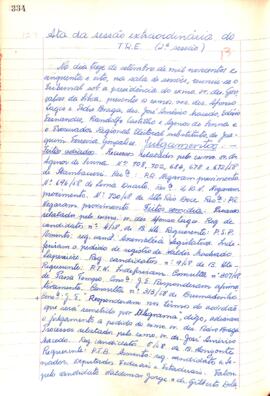 334
Ata da sessão extraordinária do
T.R.E. (2ª sessão)
13
No dia treze de setembro de mil novecentos e
cinquenta e oito, na sala de sessões, reuniu-se o
Tribunal sob a presidência do exmo sr. des.
da Silva, presentes os exmos srs. des. Afonso
Lages e Pedro Braga, drs. José Américo Macedo, Fábio
Fernandes, Randolfo Castilho e Agnos de Senna e
o Procurador Regional Eleitoral substituto dr. Joa-
quim Ferreira Gonçalves. Julgamentos: -
Feitos adiados. Recursos relatados pelo exmo sr. dr.
Agnos de Senna Nº 708, 702, 684, 678 e 672/58
de Itambacuri. Rec.º: P.R. Negaram provimento
Nº 696/58 de Lima Duarte. Rec.º U.D.N. Negaram
provimento. Nº 720/58 de Alto Rio Doce Rec.º: P.R.
Negaram provimento. Feitos
relatados pelo exmo sr. des. Afonso Lages. Reg. de
candidatos nº 4/58 de B. Hte. Requerente: P.S.P.
Assunto: reg. cand. Assembléia Legislativa. Indefe-
riram o pedido de registro de Valdir
Reg. candidatos nº 9/58 de B. Hte.
Requerente: P.T.N. Indeferiram. Consulta nº 207/58
de Passa Tempo. Cons.: J.E. Responderam afirma-
tivamente. Consulta nº 213/58 de Brumadinho.
Cons.: J.E. "Responderam nos têrmos do acórdão
que será remetido por telegrama", digo, adiaram
o julgamento a pedido do exmo sr. des. Pedro Braga
Processos relatados pelo exmo sr. dr. José Américo
Macedo. Reg. candidatos 8/58 de B. Horizonte
Requerente: P.T.B. Assunto: reg. candidatos a Se-
nador, Deputados Federais e Estaduais. Falou
pelo candidato Valdomar Jorge o dr. Gilberto